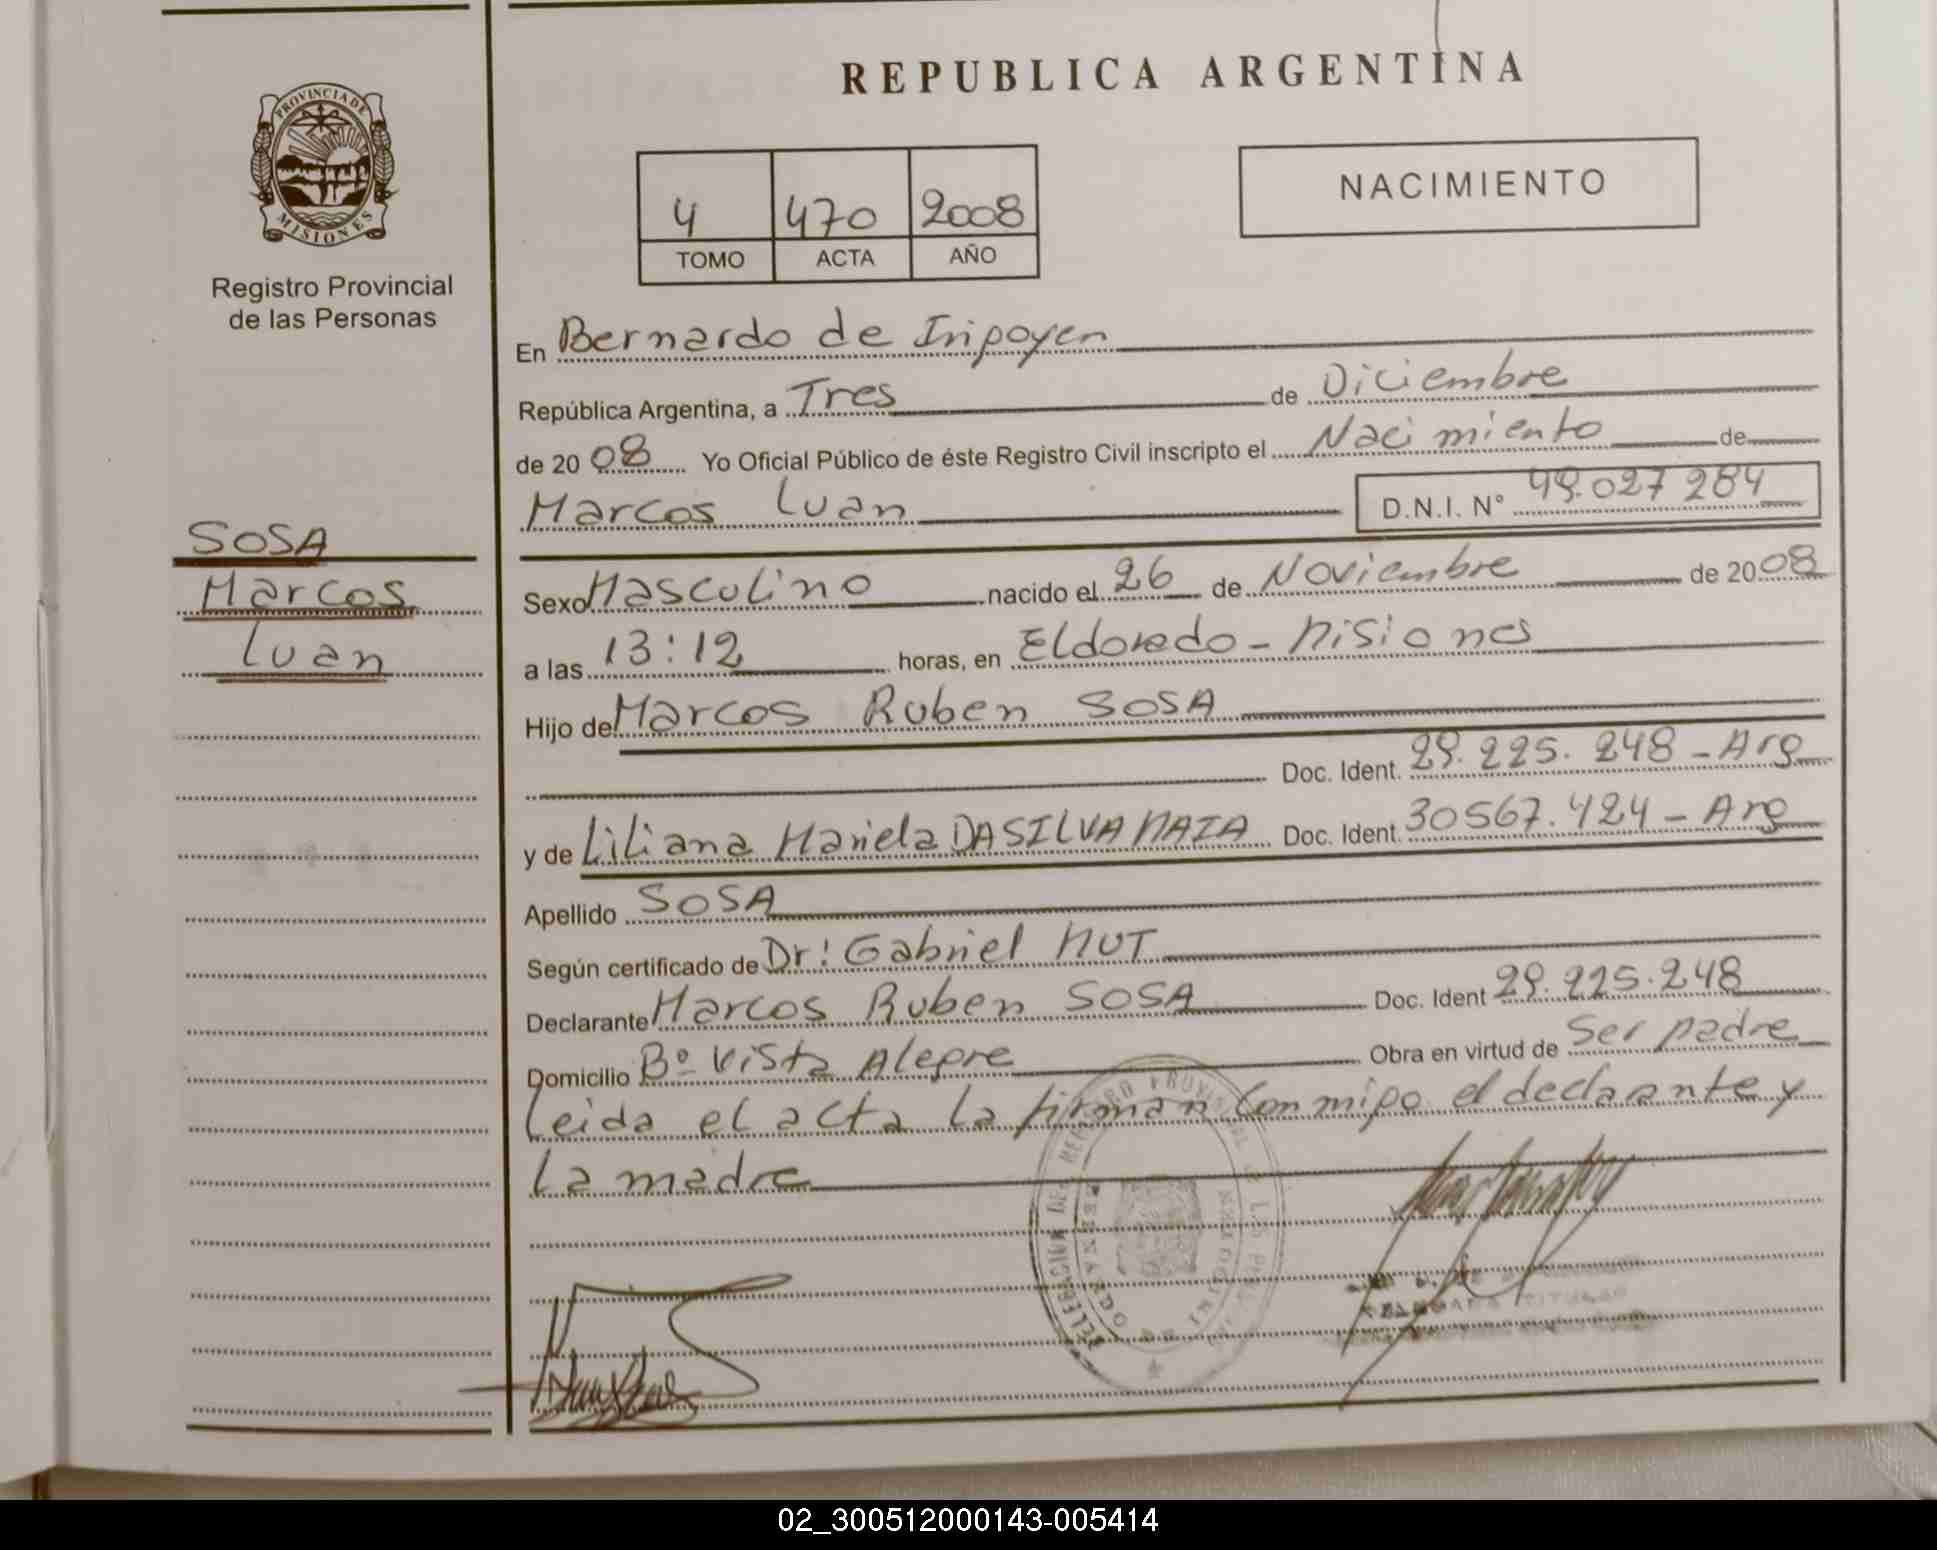 REPUBLICA ARGENTINA
PROVINCIA DE
MISIONES
Registro Provincial
de las Personas
4 470 2008
TOMO ACTA AÑO
NACIMIENTO
SOSA
Marcos
Luan
En Bernardo de Iripoyen
República Argentina, a Tres de Diciembre
de 2008 Yo Oficial Público de éste Registro Civil inscripto el Nacimiento de
Marcos Luan D.N.I. Nº 49.027 284
Sexo Masculino nacido el 26 de Noviembre de 2008
a las 13:12 horas, en Eldorado - Misiones
Hijo de Marcos Ruben SOSA
Doc. Ident. 29.225.248 - Arg
y de Liliana Mariela DASILVA MAIA Doc. Ident. 30567.424 - Arg
Apellido SOSA
Según certificado de Dr: Gabriel MUT
Declarante Marcos Ruben SOSA Doc. Ident 29.225.248
Domicilio Bº Vista Alegre Obra en virtud de Ser padre
Leida el acta la firman conmigo el declarante y
la madre
TITULAR
02_300512000143-005414